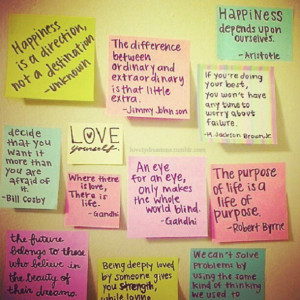 Happiness
is a direction,
not a destination
-unknown
The difference
between
ordinary and
extraordinary
is that little
extra.
-Jimmy Johnson
Happiness
depends upon
ourselves.
-Aristotle
If you're doing
your best,
you won't have
any time to
worry about
failure.
-H. Jackson Brown Jr.
decide
that you
want it
more than
you are
afraid of
it.
-Bill Cosby
LOVE
yourself.
Where there
is love,
There is
life.
-Gandhi
An eye
for an eye,
only makes
the whole
world blind.
-Gandhi
The purpose
of life is a
life of
purpose.
-Robert Byrne
the future
belongs to those
who believe in
the beauty of
their dreams.
Being deeply loved
by someone gives
you strength,
while loving
We can't solve
problems by
using the same
kind of thinking
we used to